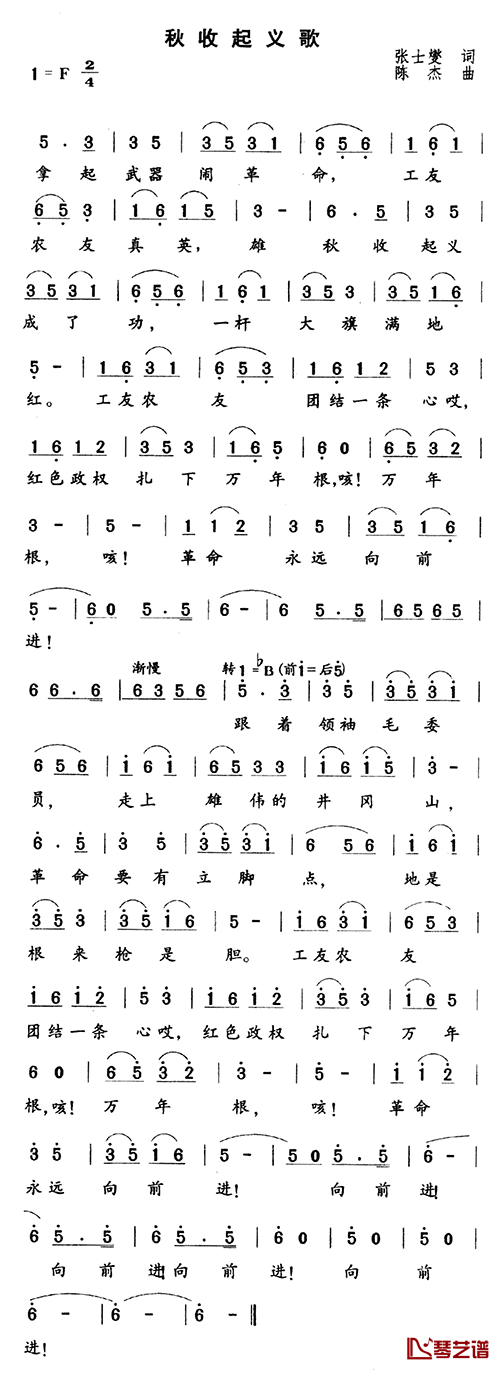 秋收起义歌
张士燮 词
1=F 2/4 陈杰 曲
5 . 3 | 3 5 | 3 5 3 1 | 6 5 6 | 1 6 1 |
拿起 武器 闹革命， 工友
6 5 3 | 1 6 1 5 | 3 - | 6 . 5 | 3 5 |
农友 真英， 雄 秋收 起义
3 5 3 1 | 6 5 6 | 1 6 1 | 3 5 3 | 3 5 1 6 |
成了功， 一杆 大旗 满地
5 - | 1 6 3 1 | 6 5 3 | 1 6 1 2 | 5 3 |
红。 工友农友 团结一条 心哎，
1 6 1 2 | 3 5 3 | 1 6 5 | 6 0 | 6 5 3 2 |
红色政权 扎下 万年 根，咳！ 万年
3 - | 5 - | 1 1 2 | 3 5 | 3 5 1 6 |
根， 咳！ 革命 永远 向前
5 - | 6 0 5 . 5 | 6 - | 6 5 . 5 | 6 5 6 5 |
进！
渐慢 转1=♭B（前i=后5）
6 6 . 6 | 6 3 5 6 | 5 . 3 | 3 5 | 3 5 3 1 |
跟着 领袖 毛委
6 5 6 | 1 6 1 | 6 5 3 3 | 1 6 1 5 | 3 - |
员， 走上 雄伟的 井冈 山，
6 . 5 | 3 5 | 3 5 3 1 | 6 5 6 | 1 6 1 |
革命 要有 立脚点， 地是
3 5 3 | 3 5 1 6 | 5 - | 1 6 3 1 | 6 5 3 |
根来 枪是 胆。 工友农友
1 6 1 2 | 5 3 | 1 6 1 2 | 3 5 3 | 1 6 5 |
团结一条 心哎， 红色政权 扎下 万年
6 0 | 6 5 3 2 | 3 - | 5 - | 1 1 2 |
根，咳！ 万年 根， 咳！ 革命
3 5 | 3 5 1 6 | 5 - | 5 0 5 . 5 | 6 -
永远 向前 进！ 向前 进！
6 5 . 5 | 6 5 . 5 | 6 0 | 5 0 | 5 0 |
向前 进！向前 进！ 向 前
6 - | 6 - | 6 - ‖
进！
琴艺谱